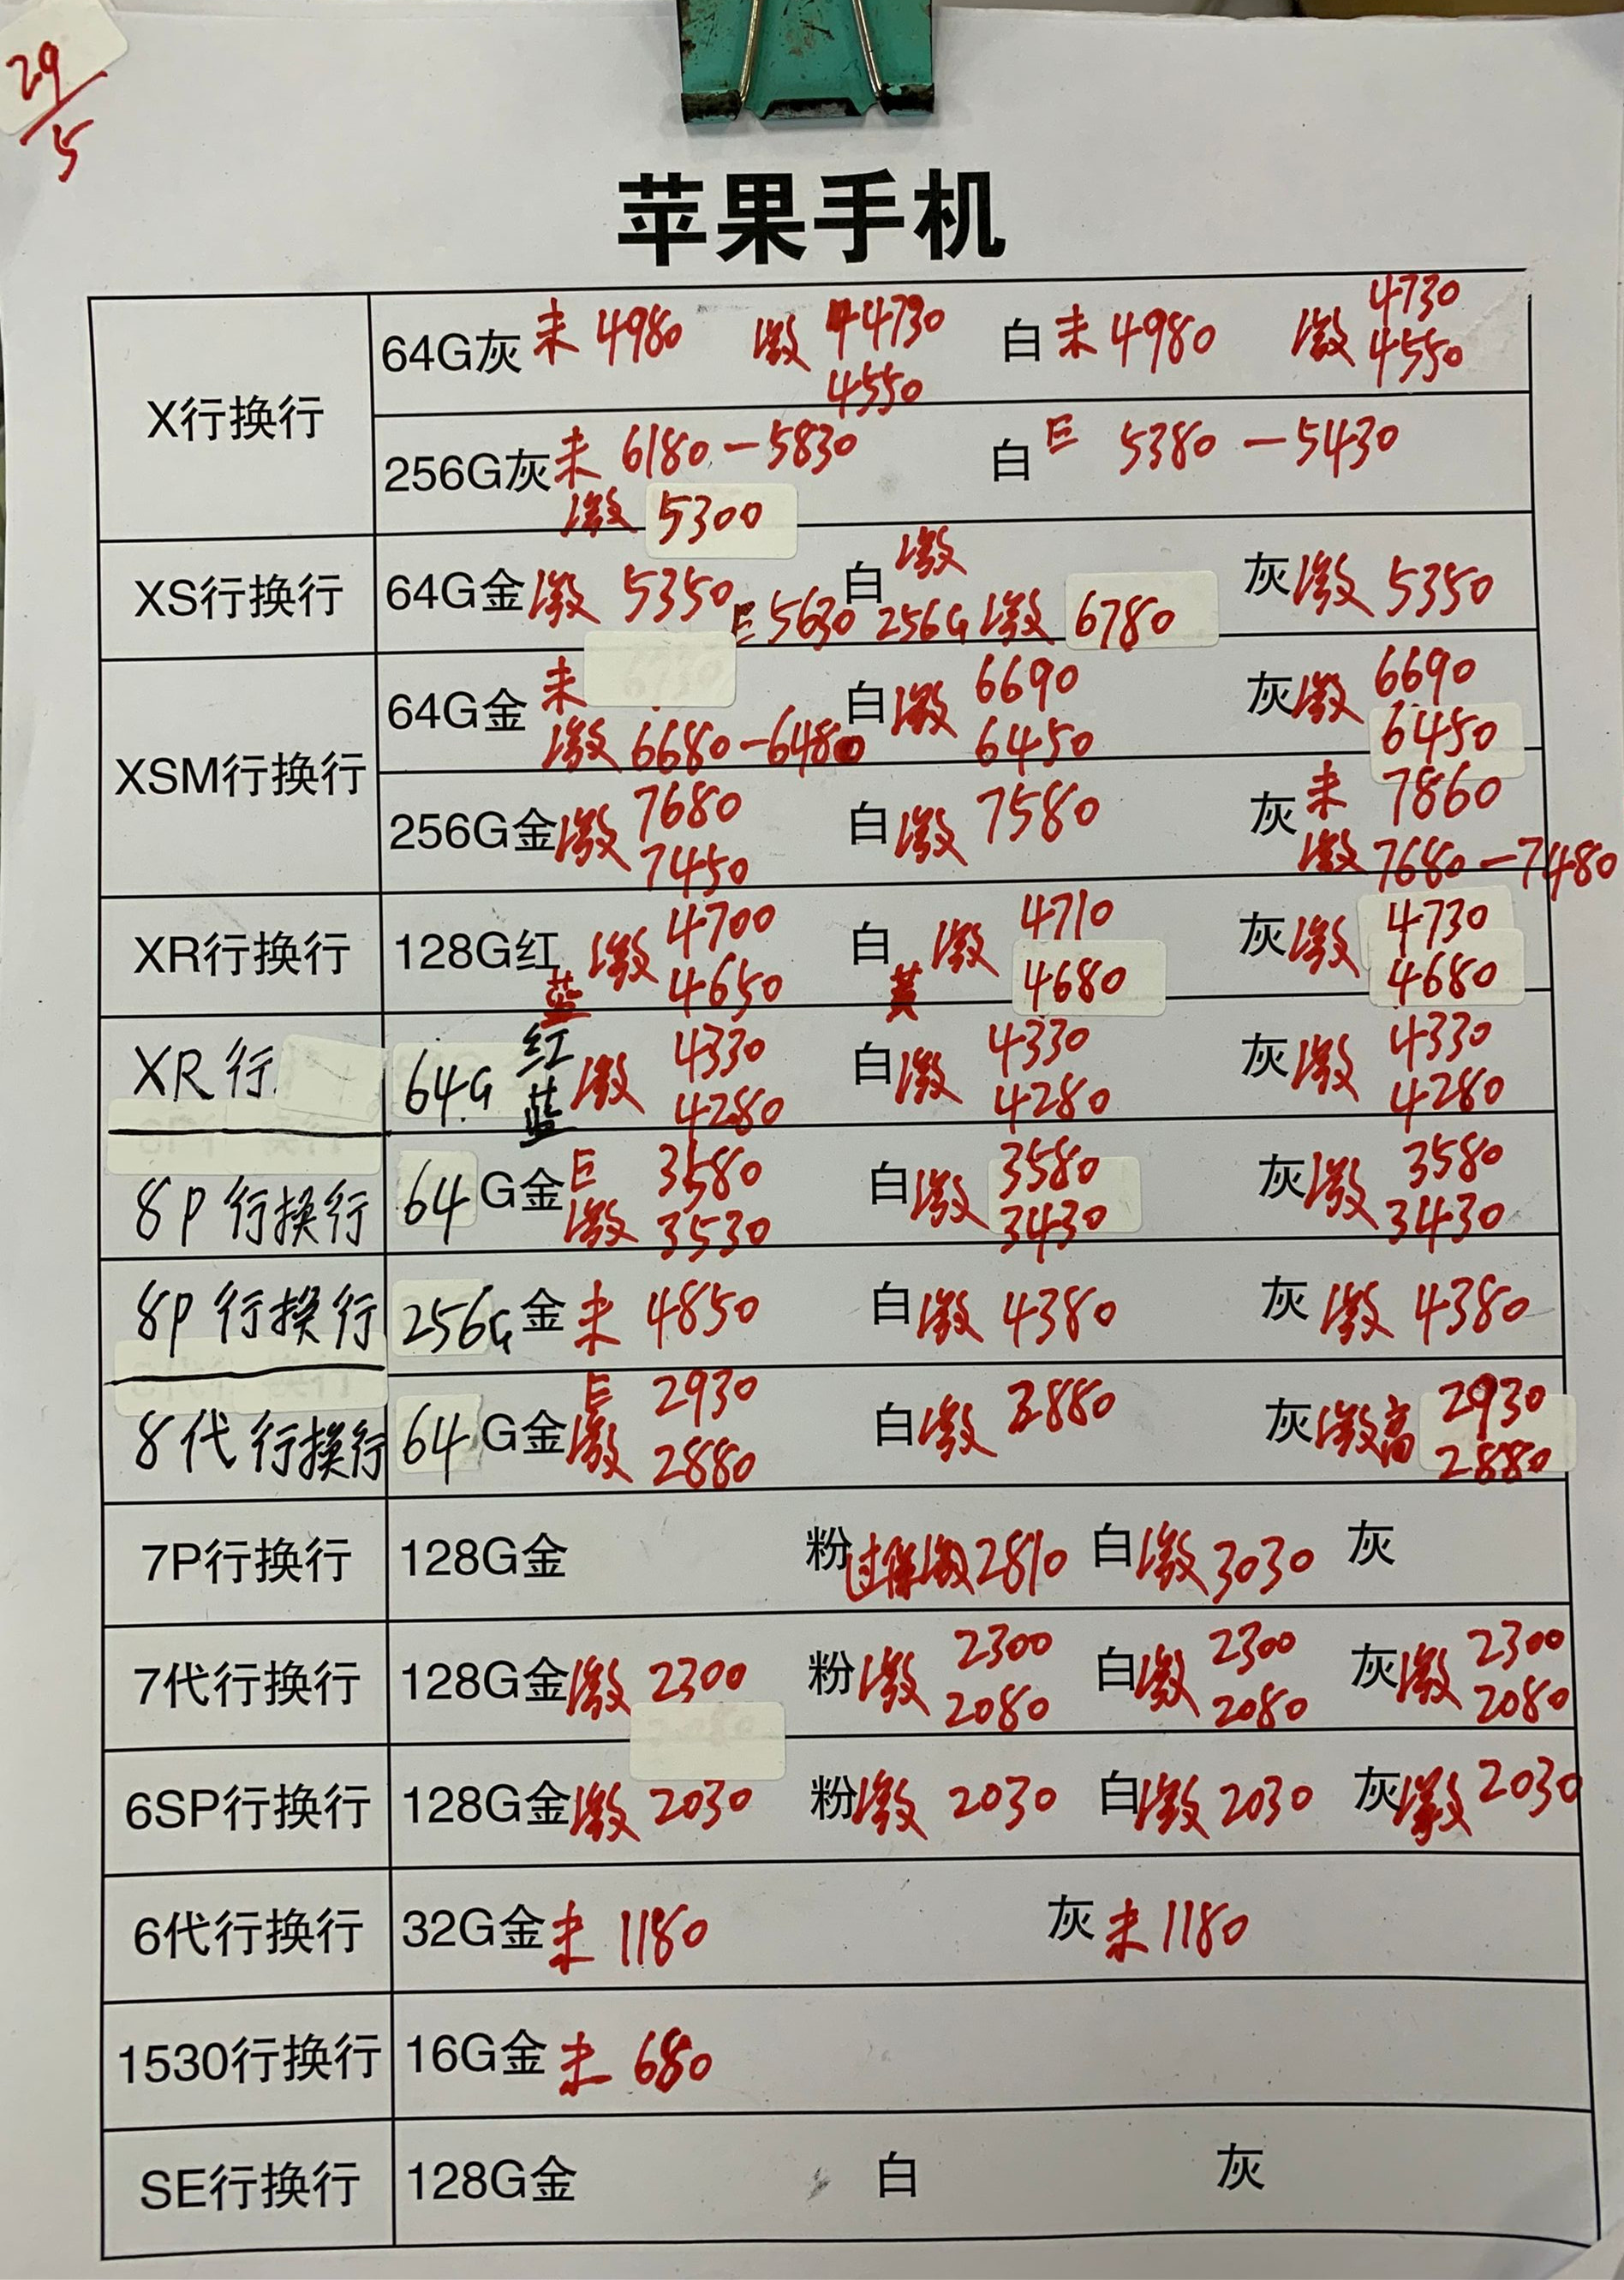 29/5
苹果手机
X行换行
64G灰 未 4980 激 4730 4550 白 未 4980 激 4730 4550
256G灰 未 6180-5830 激 5300 白 E 5380-5430
XS行换行
64G金 激 5350 E 5630 白 激 256G 激 6780 灰 激 5350
XSM行换行
64G金 未 激 6680-6480 白 激 6690 6450 灰 激 6690 6450
256G金 激 7680 7450 白 激 7580 灰 未 7860 激 7680-7480
XR行换行
128G红 蓝 激 4700 4650 白 黄 激 4710 4680 灰 激 4730 4680
XR行
64G 红 蓝 激 4330 4280 白 激 4330 4280 灰 激 4330 4280
8P行换行
64G金 E 3580 激 3530 白 激 3580 3430 灰 激 3580 3430
8P行换行
256G金 未 4850 白 激 4380 灰 激 4380
8代行换行
64G金 E 2930 激 2880 白 激 2880 灰 激 高 2930 2880
7P行换行
128G金 粉 过保激 2810 白 激 3030 灰
7代行换行
128G金 激 2300 粉 激 2300 2080 白 激 2300 2080 灰 激 2300 2080
6SP行换行
128G金 激 2030 粉 激 2030 白 激 2030 灰 激 2030
6代行换行
32G金 未 1180 灰 未 1180
1530行换行
16G金 未 680
SE行换行
128G金 白 灰